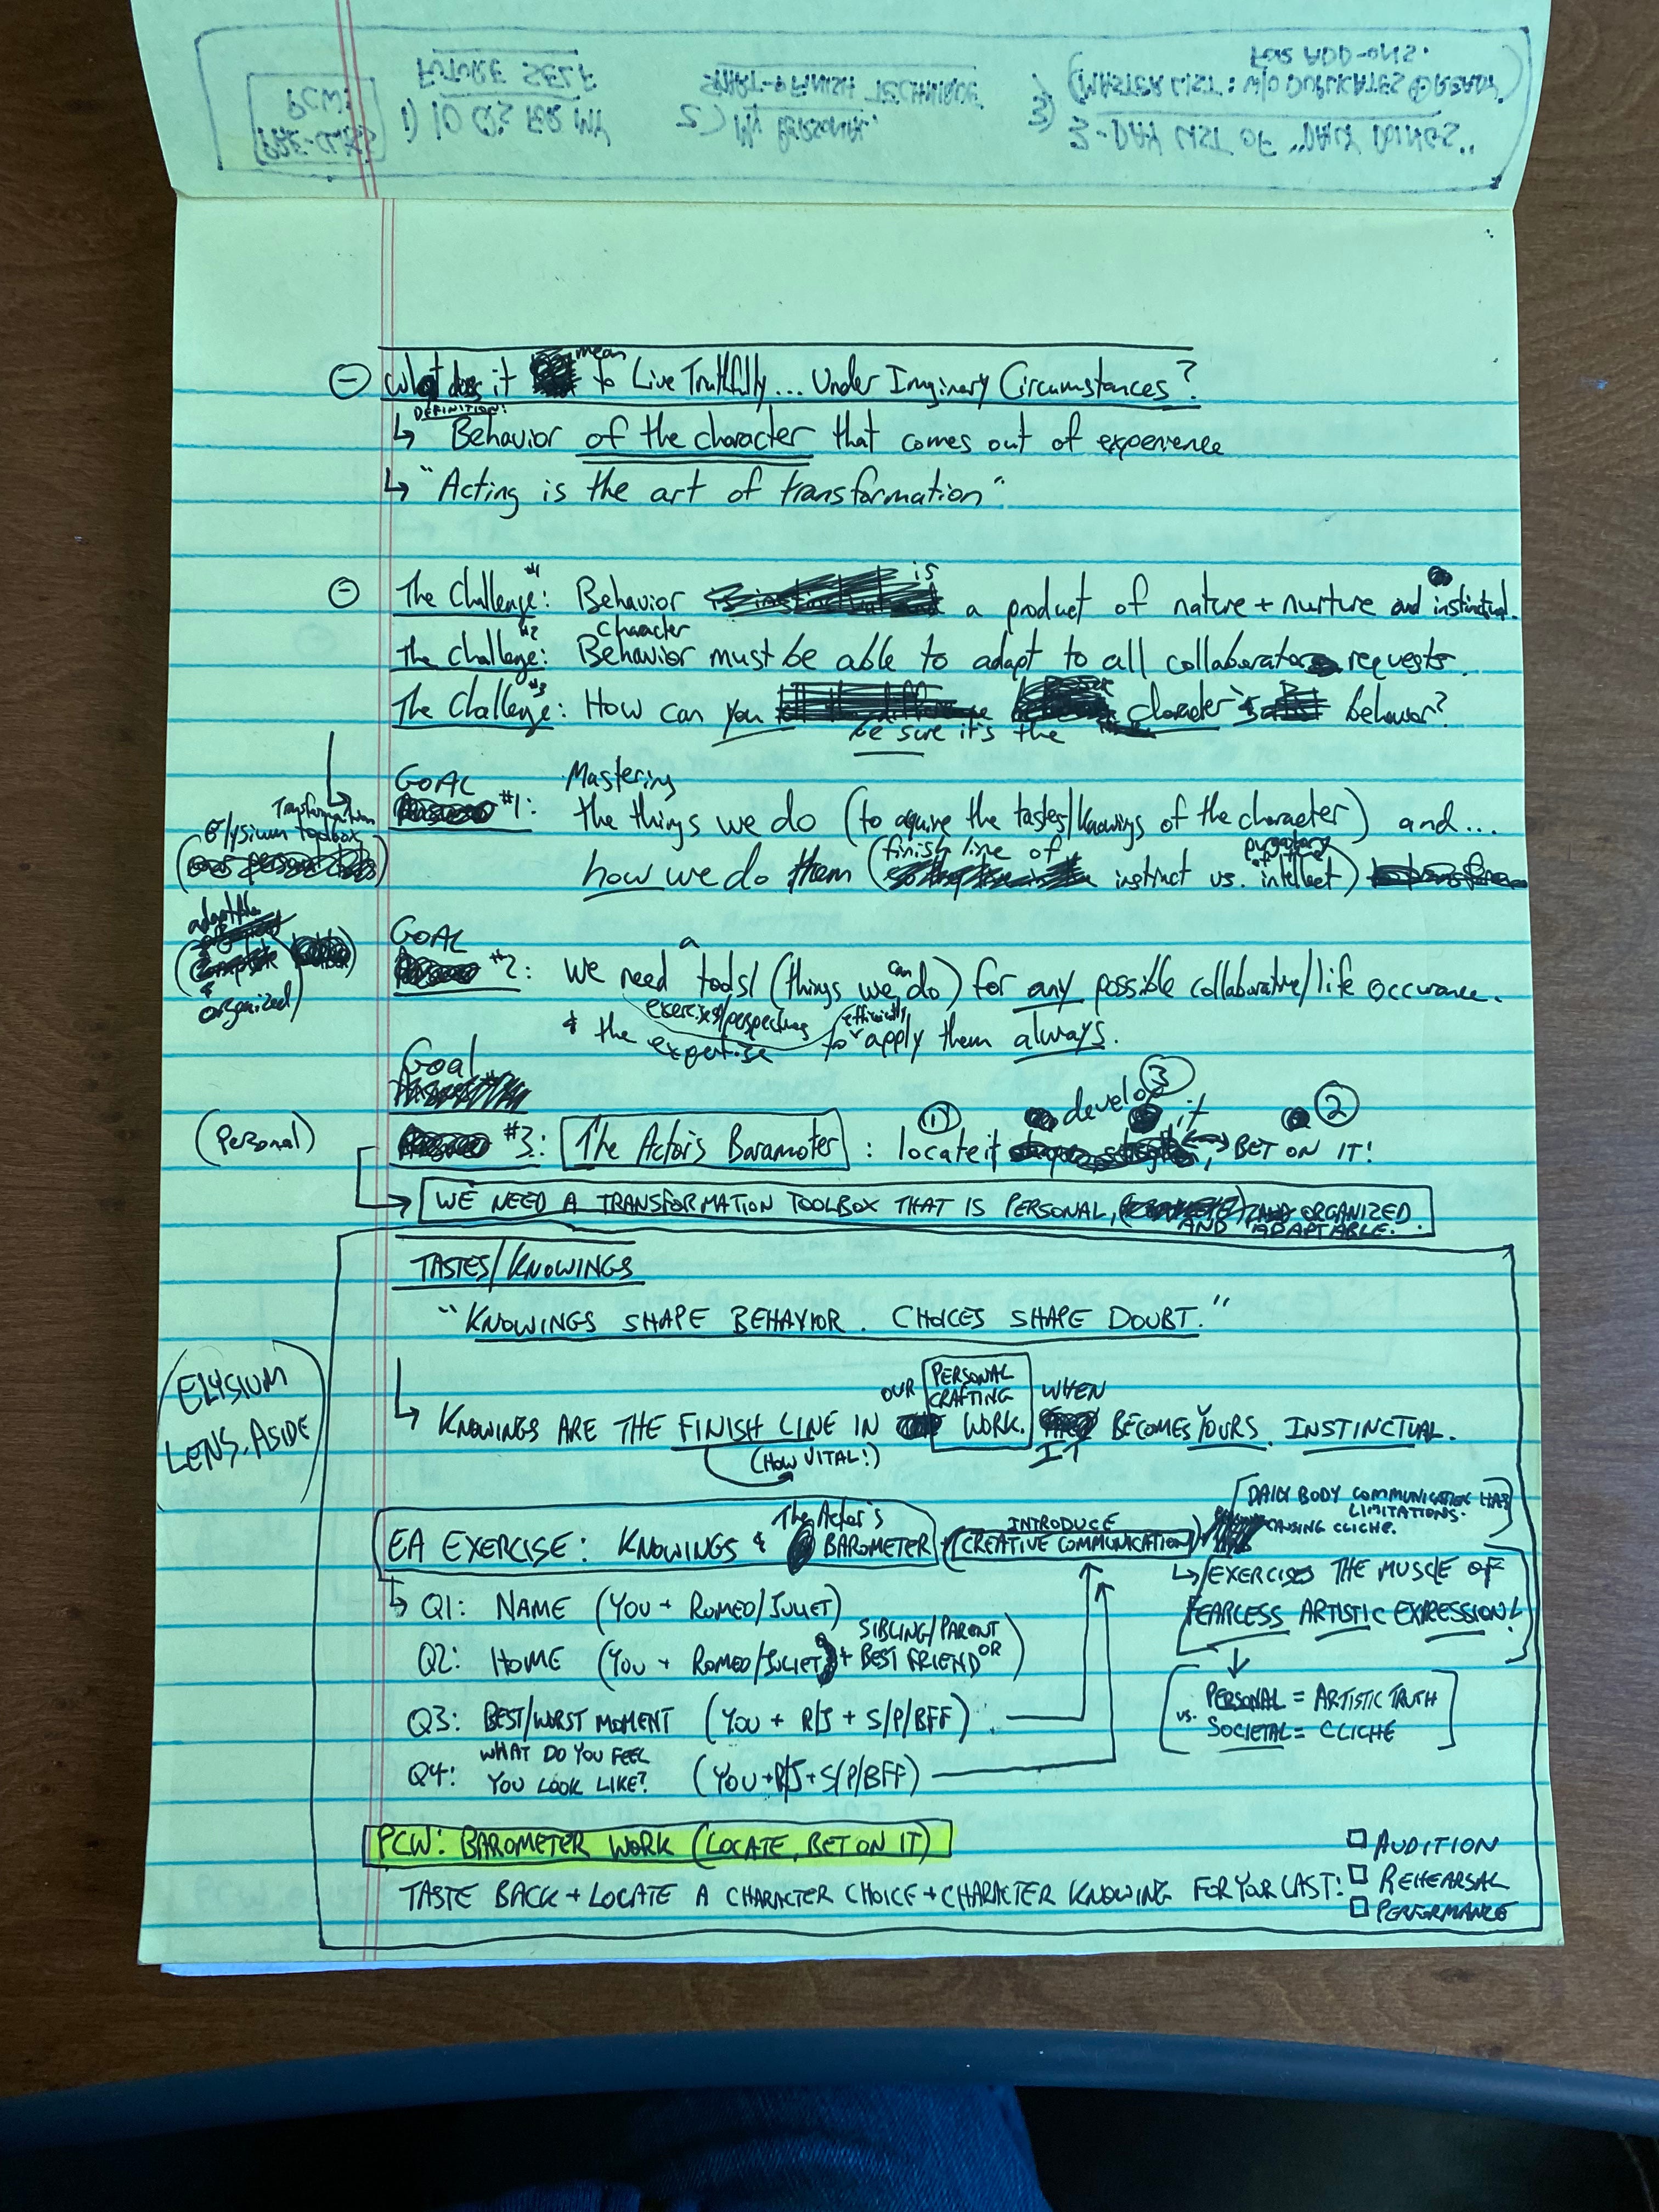 PRE-CLASS PCW:
1) 10 Q's FOR MY FUTURE SELF
2) MY PERSONAL START → FINISH TECHNIQUE
3) 3-DAY LIST OF "DAILY DOINGS"
(MASTER LIST: W/O DUPLICATES + READY FOR ADD-ONS.)
What does it mean to Live Truthfully... Under Imginary Circumstances?
DEFINITION:
↳ Behavior of the character that comes out of experience
↳ "Acting is the art of transformation"
The Challenge #1: Behavior is a product of nature + nurture and instinctual.
The Challenge #2: Character Behavior must be able to adapt to all collaborator requests.
The Challenge #3: How can you be sure it's the character's behavior?
GOAL #1: Mastering
the things we do (to aquire the tastes/knowings of the character) and...
how we do them (finish line of instinct vs. purgatory of the intellect)
Transformation
Elysium toolbox
GOAL #2: We need a tools/ (things we can do) for any possible collaborative/life occurance.
exercises/perspectives
& the expertise to efficiently apply them always.
adaptable
& organized)
Goal
#3: The Actor's Baramoter : ① locate it ③ develop it ↔ ② BET ON IT!
(Personal)
→ WE NEED A TRANSFORMATION TOOLBOX THAT IS PERSONAL, ORGANIZED AND ADAPTABLE.
TASTES/KNOWINGS
"KNOWINGS SHAPE BEHAVIOR. CHOICES SHAPE DOUBT."
(ELYSIUM
LENS, ASIDE)
↳ KNOWINGS ARE THE FINISH LINE IN OUR PERSONAL CRAFTING WORK. WHEN IT BECOMES YOURS. INSTINCTUAL.
(HOW VITAL!)
EA EXERCISE: KNOWINGS & The Actor's BAROMETER
INTRODUCE
(CREATIVE COMMUNICATION)
[DAILY BODY COMMUNICATION HAS
LIMITATIONS.
CAUSING CLICHE.]
↳ [EXERCISES THE MUSCLE OF
FEARLESS ARTISTIC EXPRESSION!]
↓
[PERSONAL = ARTISTIC TRUTH
vs. SOCIETAL = CLICHE]
↳ Q1: NAME (YOU + ROMEO/JULIET)
Q2: HOME (YOU + ROMEO/JULIET + SIBLING/PARENT OR BEST FRIEND)
Q3: BEST/WORST MOMENT (YOU + R/J + S/P/BFF)
Q4: WHAT DO YOU FEEL YOU LOOK LIKE? (YOU + R/J + S/P/BFF)
PCW: BAROMETER WORK (LOCATE, BET ON IT)
TASTE BACK + LOCATE A CHARACTER CHOICE + CHARACTER KNOWING FOR YOUR LAST:
☐ AUDITION
☐ REHEARSAL
☐ PERFORMANCE